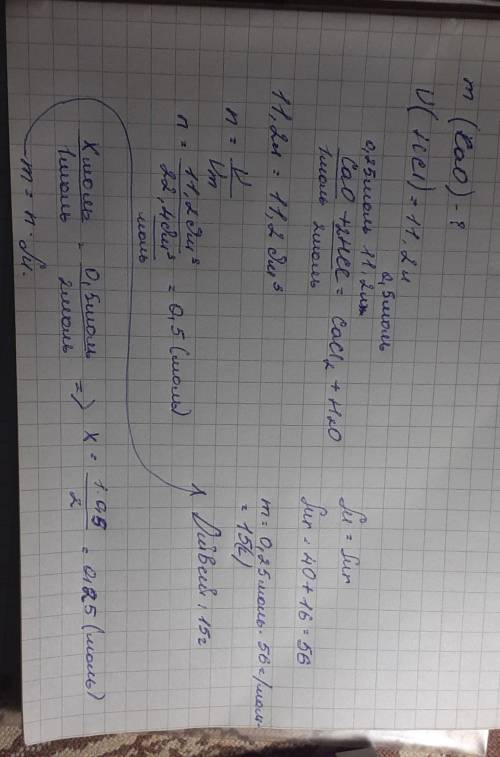 m (CaO) - ?
V(HCl) = 11,2 л
0,5 моль
0,25 моль 11,2 л
CaO + 2HCl = CaCl₂ + H₂O
1 моль 2 моль
11,2 л = 11,2 дм³
n = V / Vm
n = 11,2 дм³ / 22,4 дм³/моль = 0,5 (моль)
X моль / 1 моль = 0,5 моль / 2 моль => X = 1·0,5 / 2 = 0,25 (моль)
m = n · M.
M = Mr
Mr = 40 + 16 = 56
m = 0,25 моль · 56 г/моль
= 15(г)
: 15г